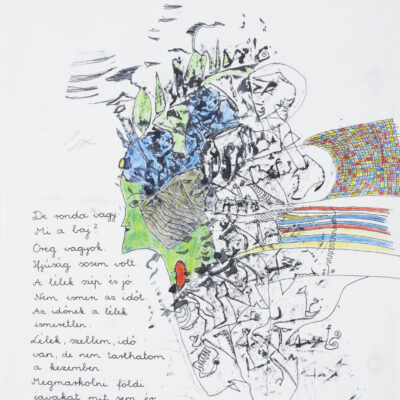 De ronda vagy
Mi a baj?
Öreg vagyok.
Ifjúság sosem volt
A lélek szép és jó
Nem ismeri az időt
Az időnek a lélek
ismeretlen.
Lélek, szellem, idő
van, de nem tarthatom
a kezemben.
Megmarkolni földi
javakat mit sem ér